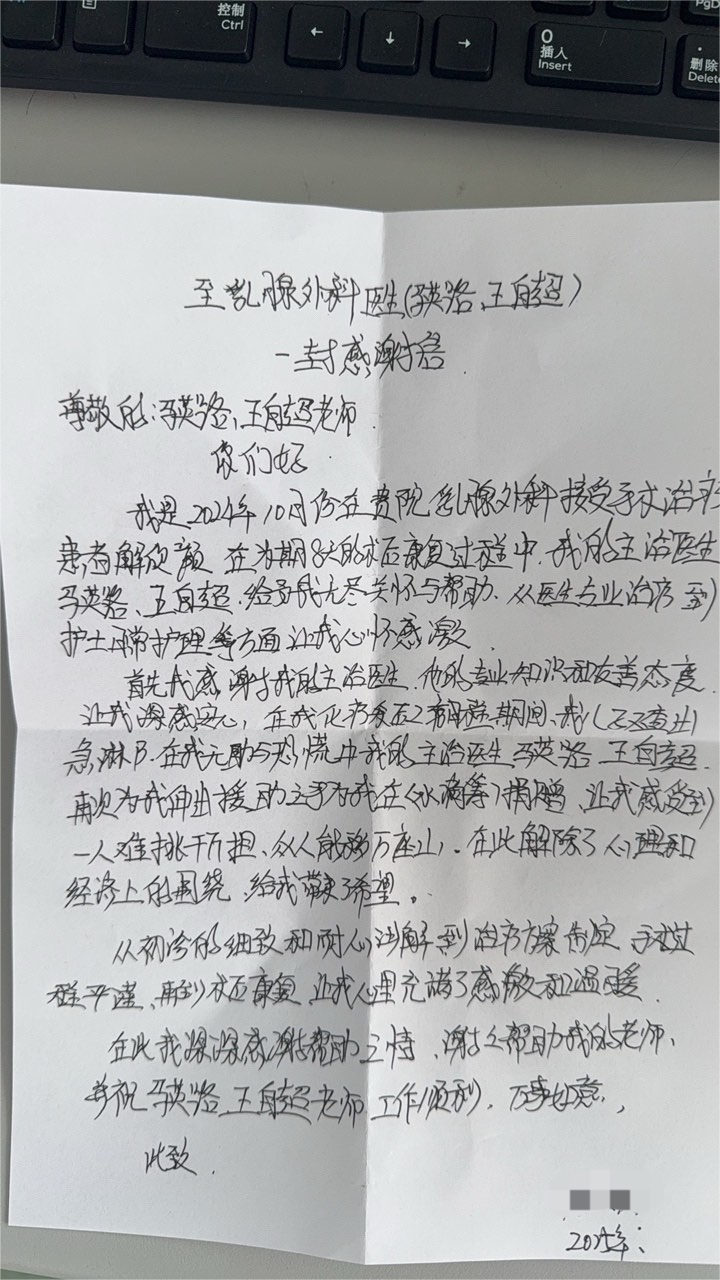 控制
Ctrl
←
↓
→
0
插入
Insert
PgD
删除
Delete
至乳腺外科医生(英路、王自超)
一封感谢信
尊敬的:英路、王自超老师
你们好
我是2024年10月份在贵院乳腺外科接受手术治疗
患者解 在为期8天的术后康复过程中.我的主治医生
英路、王自超.给予我无尽关怀与帮助.从医生专业治疗到
护士日常护理等方面让我心怀感激
首先我感谢我的主治医生.他的专业知识和友善态度
让我深感安心,在我化疗期间.我又查出
急淋B.在我无助与恐慌中我的主治医生英路 王自超.
再次为我伸出援助之手为我在《水滴筹》捐赠,让我感受到
一人难挑千斤担、众人能移万座山.在此解除了心理和
经济上的困绕,给我带来了希望。
从初诊的细致和耐心讲解到治疗方案制定 手术过
程严谨、再到术后康复.让我心里充满了感激和温暖.
在此我深深感谢帮助支持、谢谢帮助我的老师、
并祝英路 王自超老师 工作顺利,万事如意,
此致.
2025年